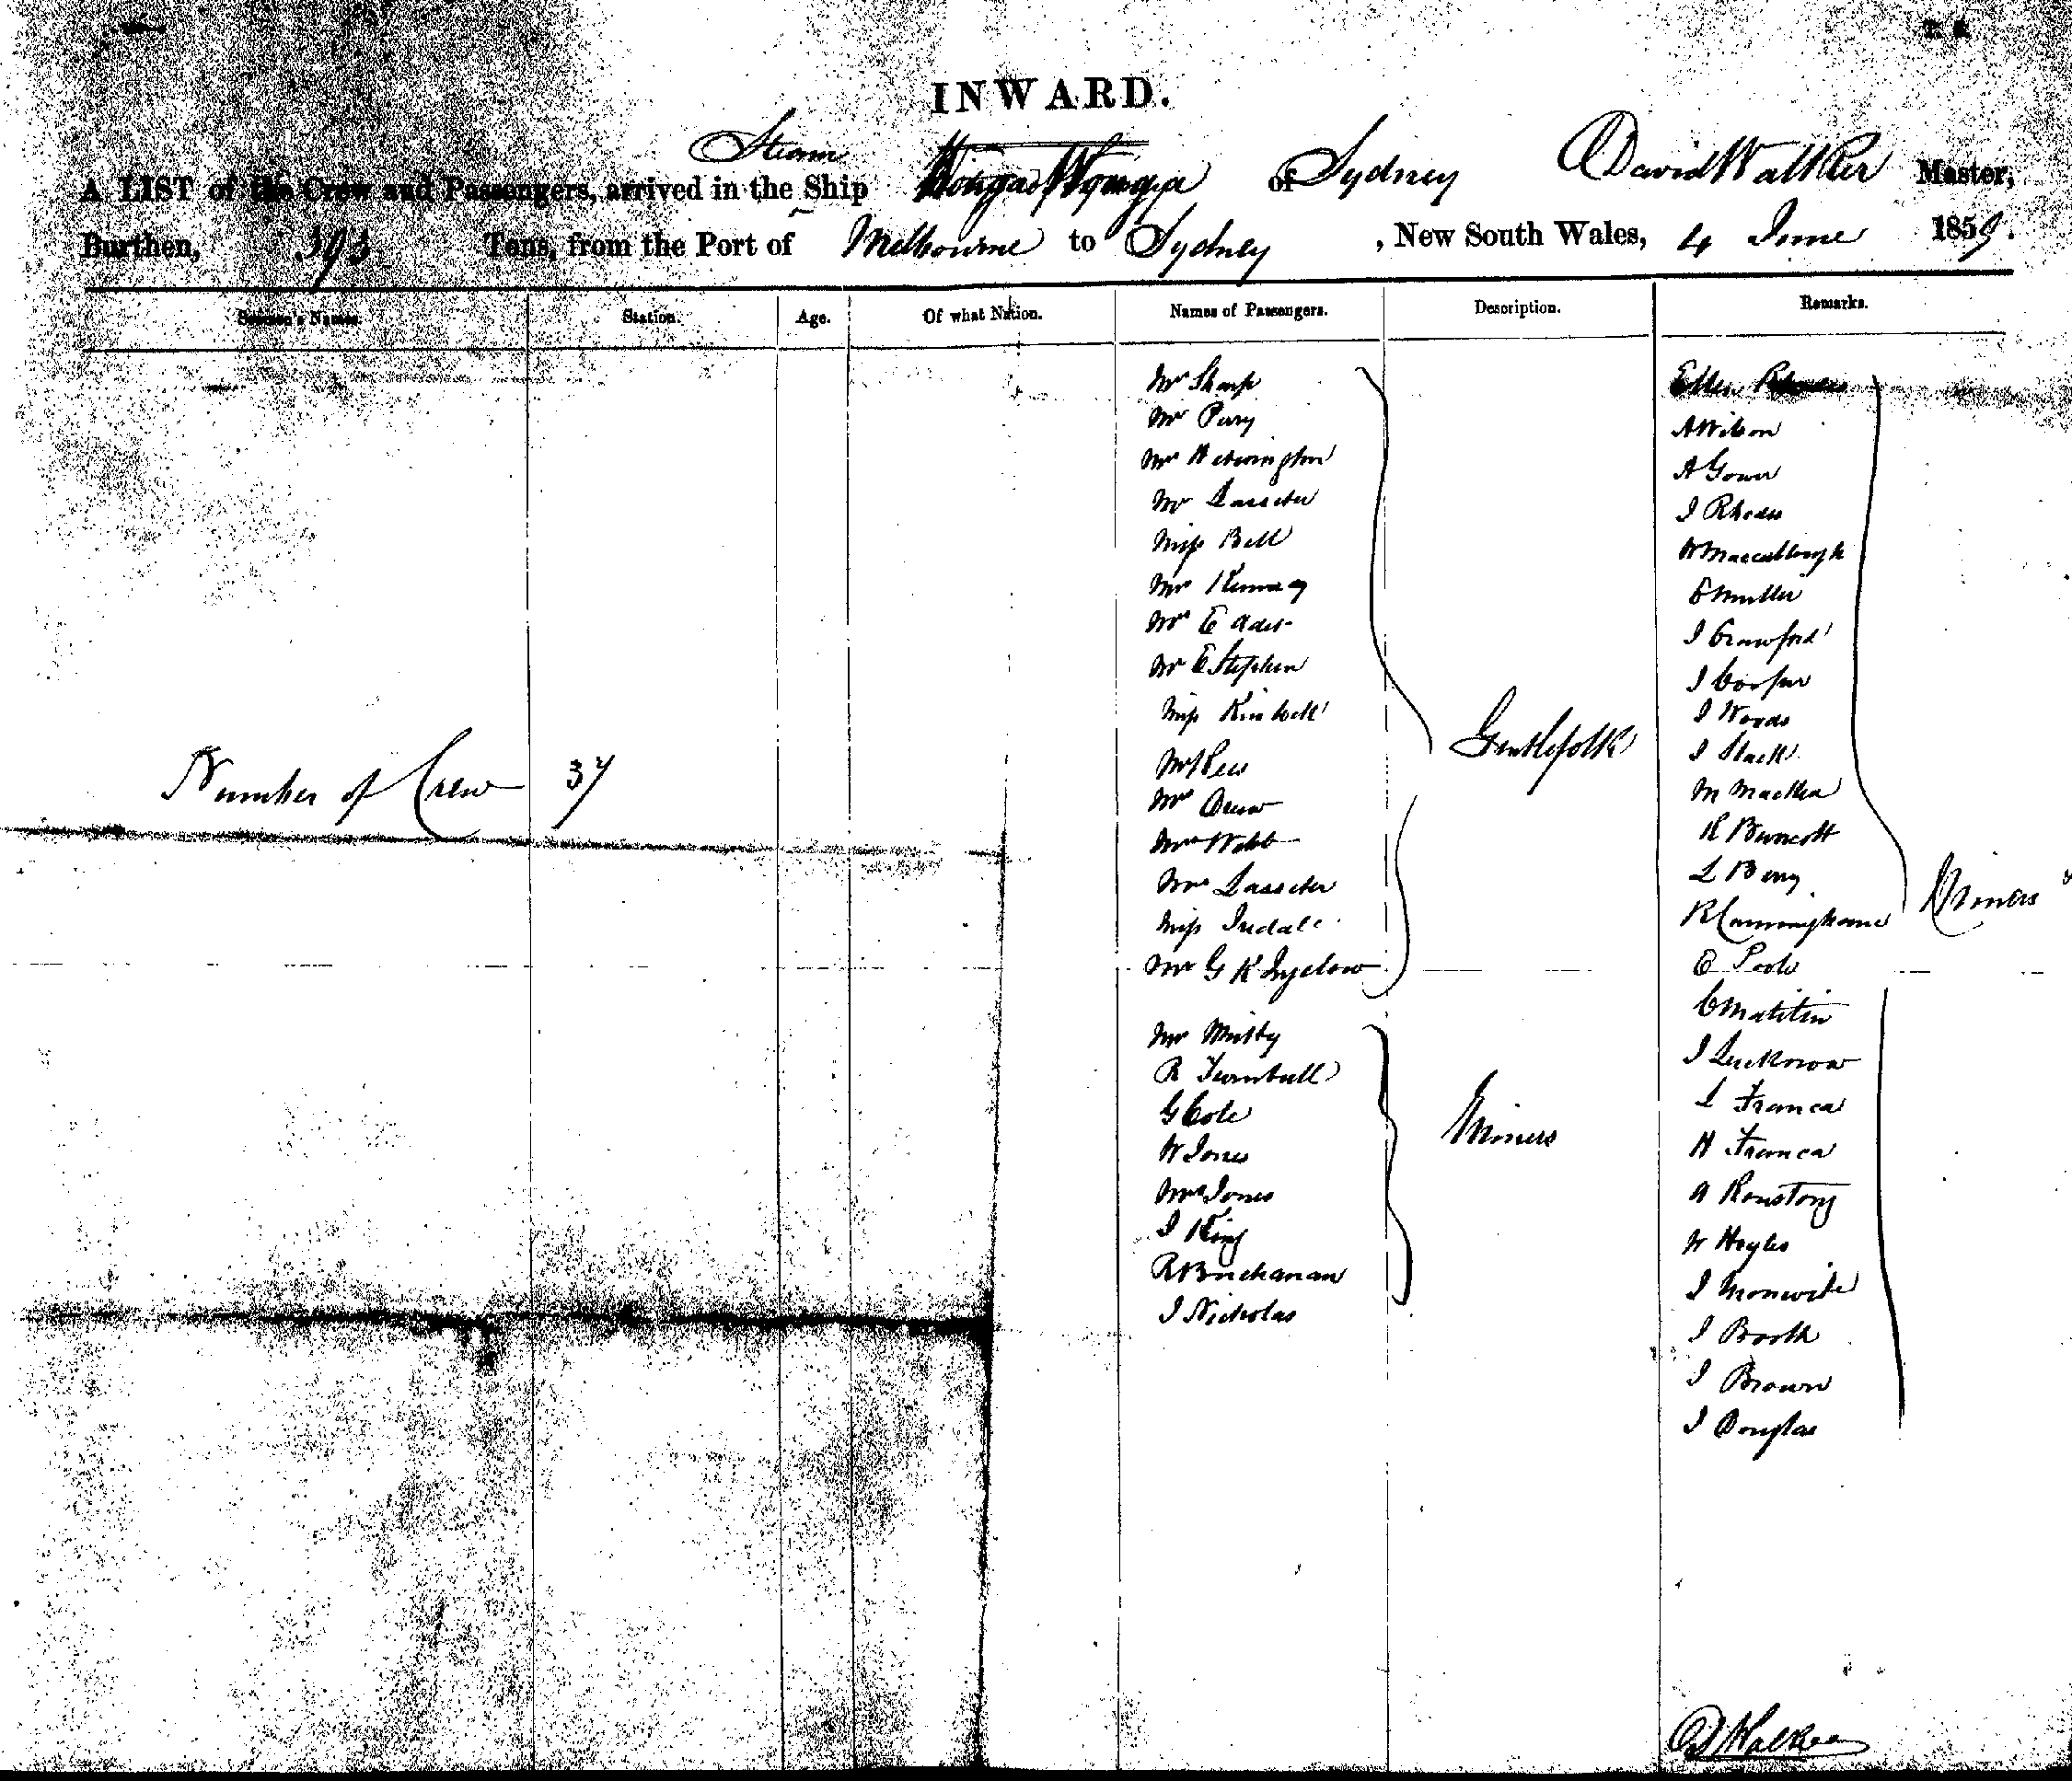 INWARD.
Steam
A LIST of the Crew and Passengers, arrived in the Ship Wonga Wonga of Sydney David Walker Master,
Burthen, Tons, from the Port of Melbourne to Sydney , New South Wales, 4 June 1859.
Seamen's Names. Station. Age. Of what Nation. Names of Passengers. Description. Remarks.
Number of Crew 37
Mr Sharp
Mr
Mr Hetherington
Mr Lasseter
Miss Bell
Mr
Mr E
Mr E Stephen
Miss
Mr
Mr Drew
Webb
Mrs Lasseter
Miss
Mr G K Ingelow
Gentlefolk
Mr
R Turnbull
G Cole
W Jones
Mrs Jones
J King
R Buchanan
J Nicholas
Miners
Ellen
A Wilson
A Gower
J Rhodes
W
E Muller
J Crawford
J Cooper
J Woods
J Slack
M
R
L Berry
R Cunninghame
E Poole
C
J Lucknow
L Franca
H Franca
A
W Hoyles
J
J Booth
J Brown
J Douglas
Miners
D Walker